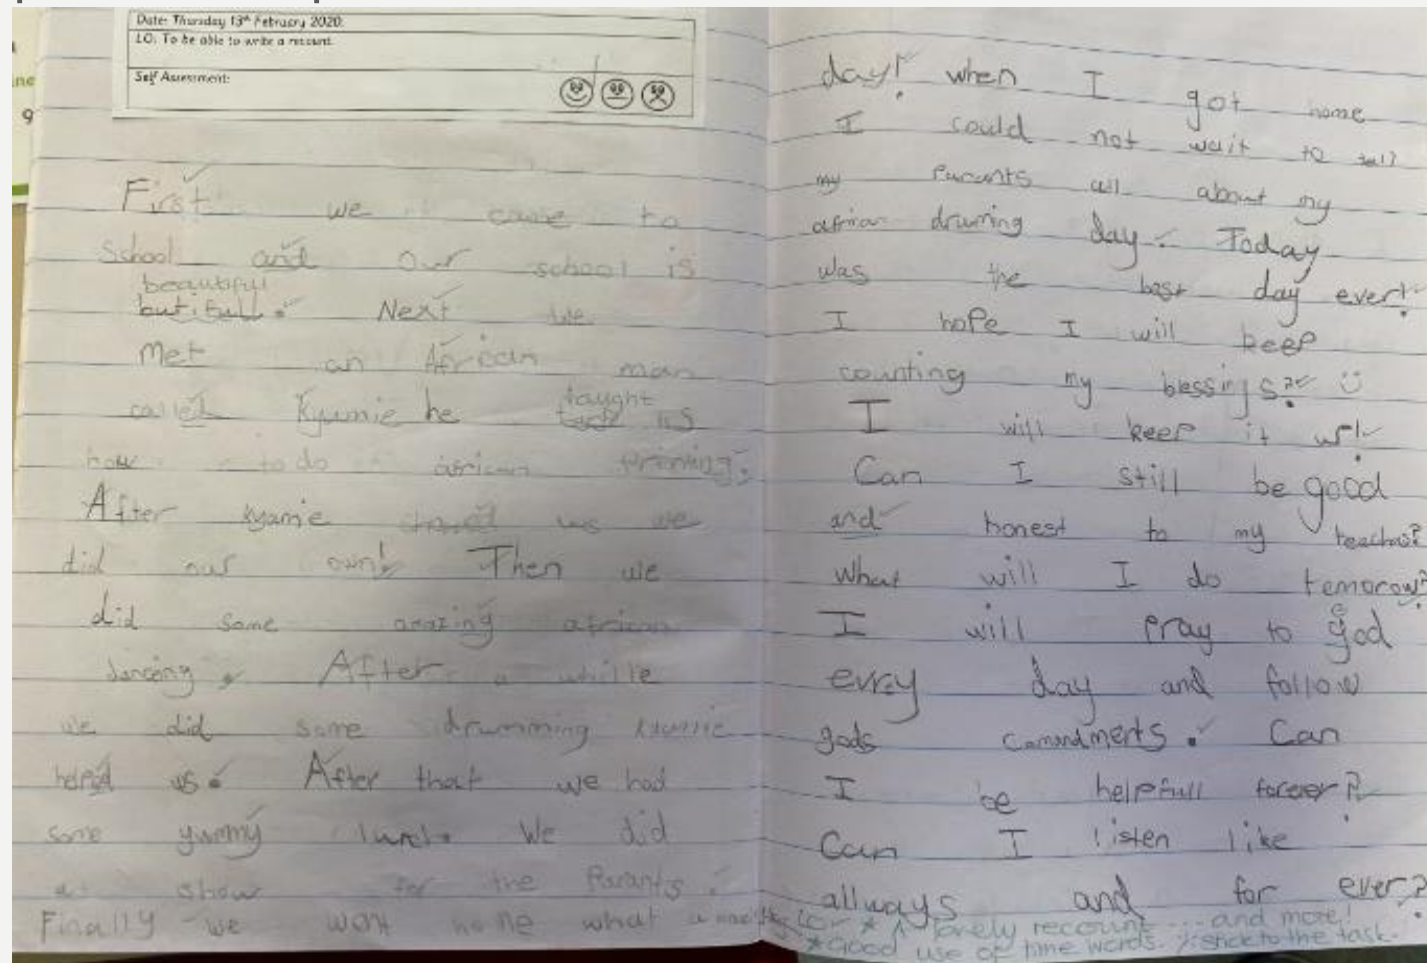 Date: Thursday 13th February 2020.
LO: To be able to write a recount.
Self Assessment:
9
First we came to
School and our school is
beautiful
butifull. Next we
met an African man
called Kyumie he taught us
how to do african
After kyamie showed us we
did our own! Then we
did some amazing african
dancing. After a whille
we did some drumming kyumie
helped us. After that we had
some yummy lunch. We did
a show for the Parants.
Finally we want home what a
day! when I got home
I could not wait to tell
my Parants all about my
african druming day. Today
was the best day ever!
I hope I will keep
counting my blessings?
I will keep it up!
Can I still be good
and honest to my
What will I do temorow?
I will pray to god
evrey day and follow
gods comandments. Can
I be helpfull forever?
Can I listen like
allways and for ever?
LO * A lovely recount... and more!
* Good use of time words. stick to the task.